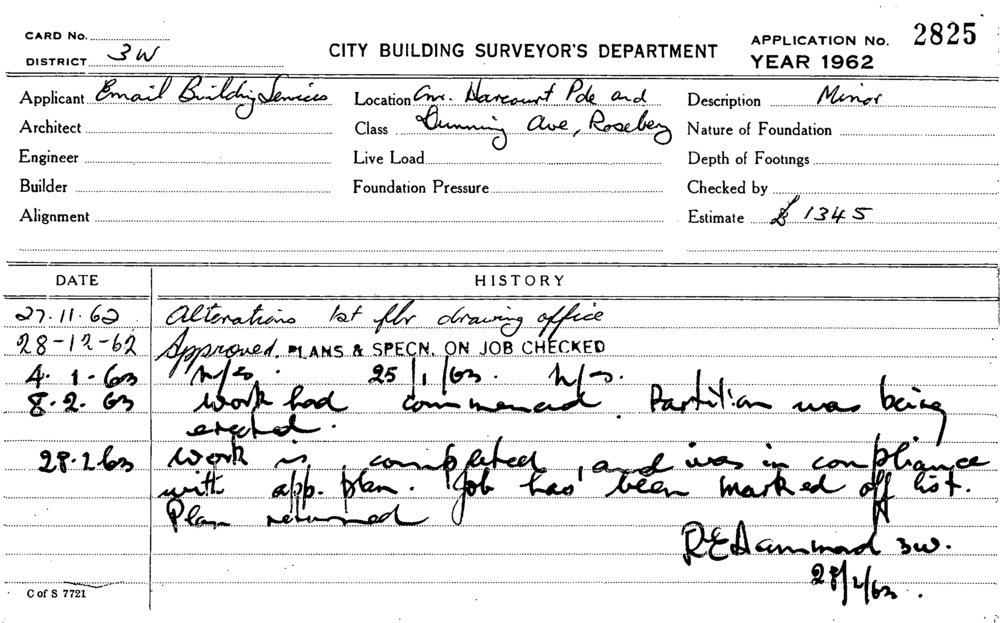 CARD No.
DISTRICT 3W
CITY BUILDING SURVEYOR'S DEPARTMENT
APPLICATION No. 2825
YEAR 1962
Applicant Email Building Services
Location Cnr. Harcourt Pde and
Description Minor
Architect
Class Dunning Ave, Rosebery
Nature of Foundation
Engineer
Live Load
Depth of Footings
Builder
Foundation Pressure
Checked by
Alignment
Estimate £ 1345
DATE HISTORY
27.11.62 Alterations 1st flr drawing office
28-12-62 Approved. PLANS & SPECN. ON JOB CHECKED
4.1.63 N/S. 25/1/63. N/S.
8.2.63 Work had commenced. Partition was being
erected.
28.2.63 Work is completed, and was in compliance
with app. plan. Job has been marked off list.
Plan returned
REHammond 3W.
28/2/63.
C of S 7721